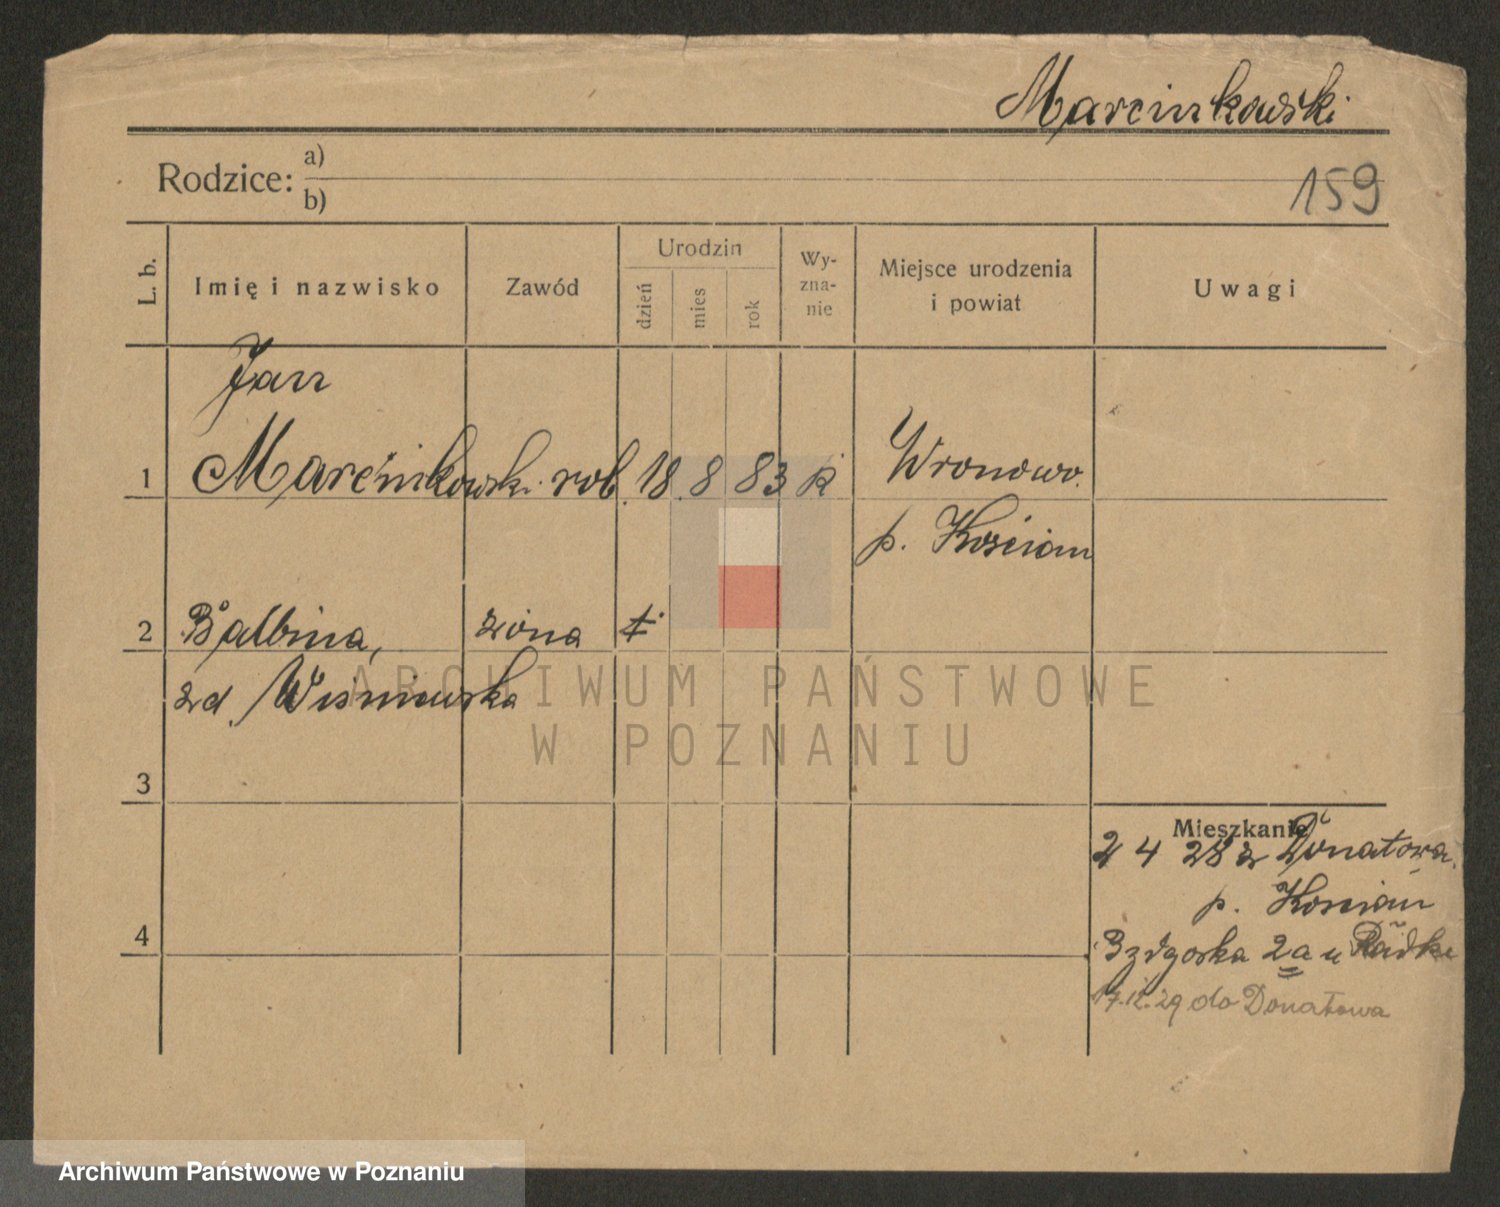 Marcinkowski
Rodzice: a)
b)
159
L. b. Imię i nazwisko Zawód Urodzin dzień mies rok Wy-zna-nie Miejsce urodzenia i powiat Uwagi
Jan
1 Marcinkowski rob. 18 8 83 k Wronowo.
p. Kościan
2 Balbina, żona
zd. Wiśniewska
3
Mieszkanie
2 4 28 z Donatowa
p. Kościan
4
2a u Radke
17.12.29 do Donatowa
ARCHIWUM PAŃSTWOWE
W POZNANIU
Archiwum Państwowe w Poznaniu